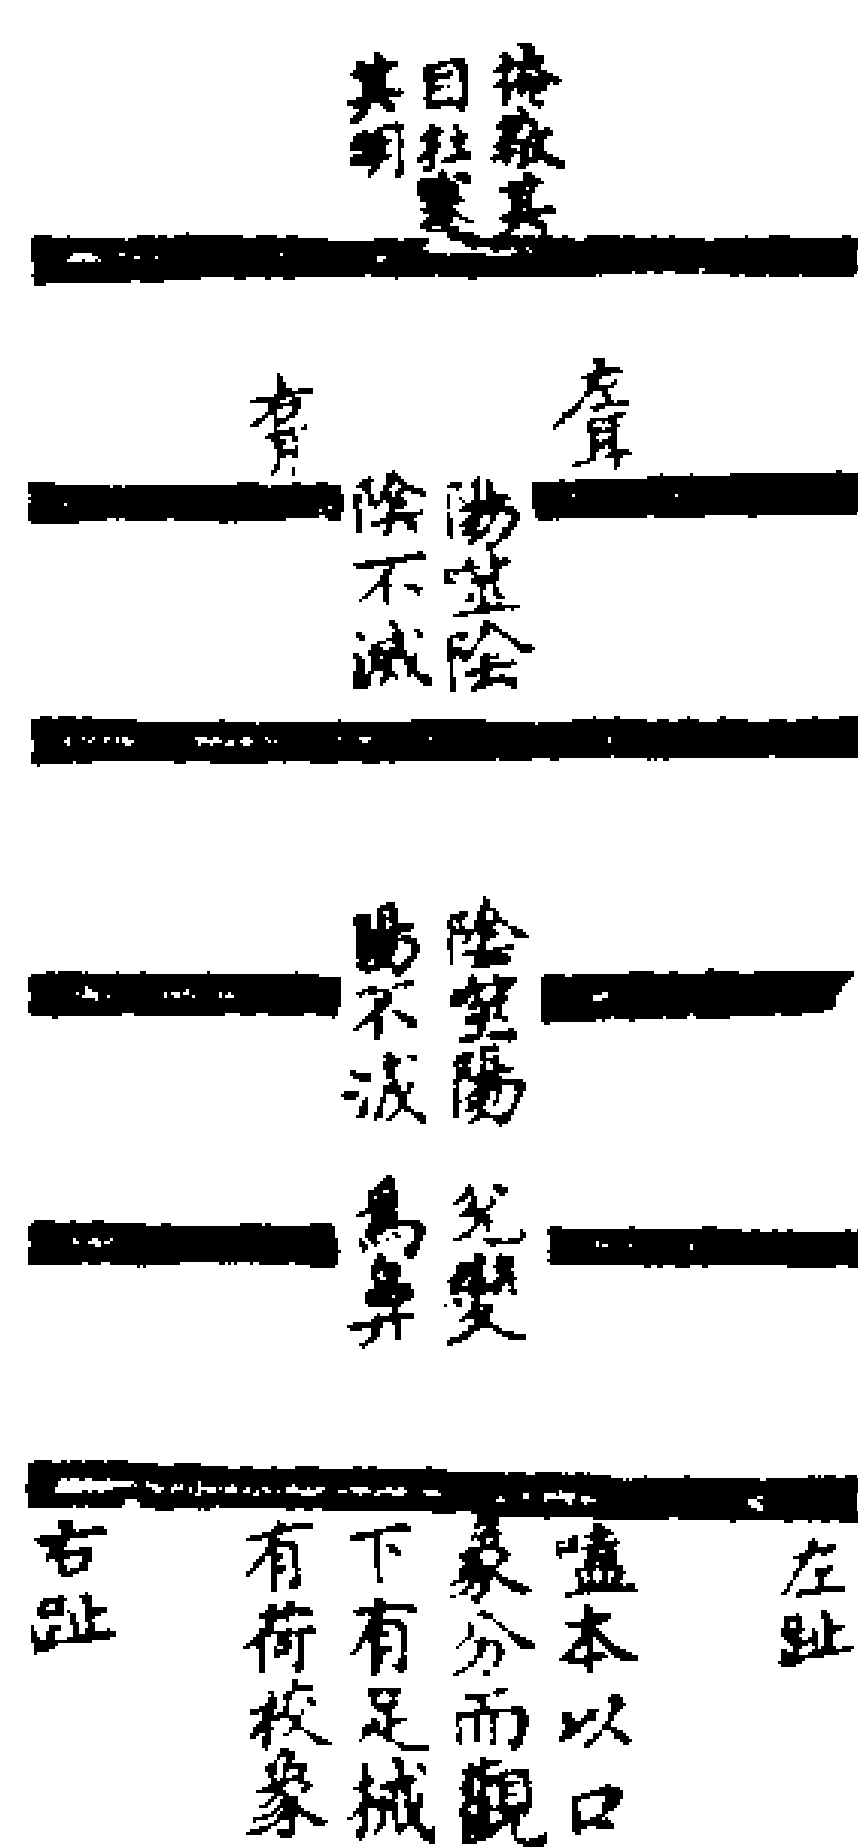 掩蔽其
目杜塞
其明
左耳
右耳
陽並陰
陰不滅
陰並陽
陽不滅
兌變
為鼻
左趾
噬本以口
象分而觀
下有足械
有荷校象
右趾